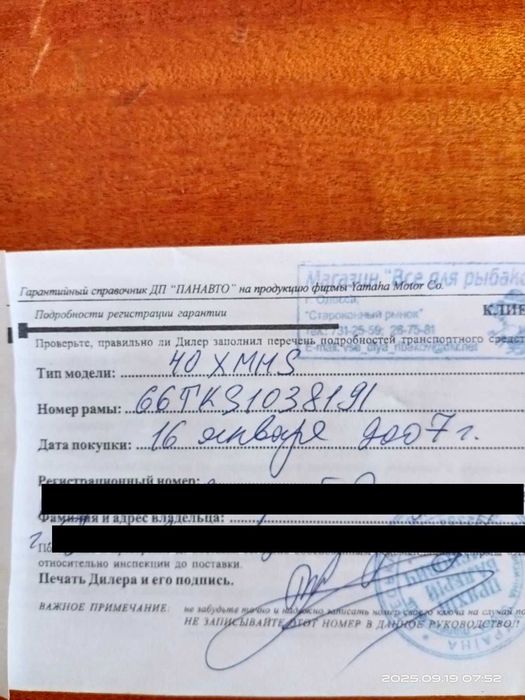 Магазин "Все для рыбалк
г. Одесса,
"Староконный рынок"
тел.: 731-25-59; 28-75-81
Гарантийный справочник ДП "ПАНАВТО" на продукцию фирмы Yamaha Motor Co.
Подробности регистрации гарантии КЛИЕ
Проверьте, правильно ли Дилер заполнил перечень подробностей транспортного средст
Тип модели: 40 XMHS
Номер рамы: 66TKS1038191
Дата покупки: 16 января 2007 г.
Регистрационный номер:
Фамилия и адрес владельца:
г.
относительно инспекции до поставки.
Печать Дилера и его подпись.
ВАЖНОЕ ПРИМЕЧАНИЕ: не забудьте точно и надежно записать номер своего ключа на случай по
НЕ ЗАПИСЫВАЙТЕ ЭТОТ НОМЕР В ДАННОЕ РУКОВОДСТВО!!
УКРАЇНА
2025.09.19 07:52